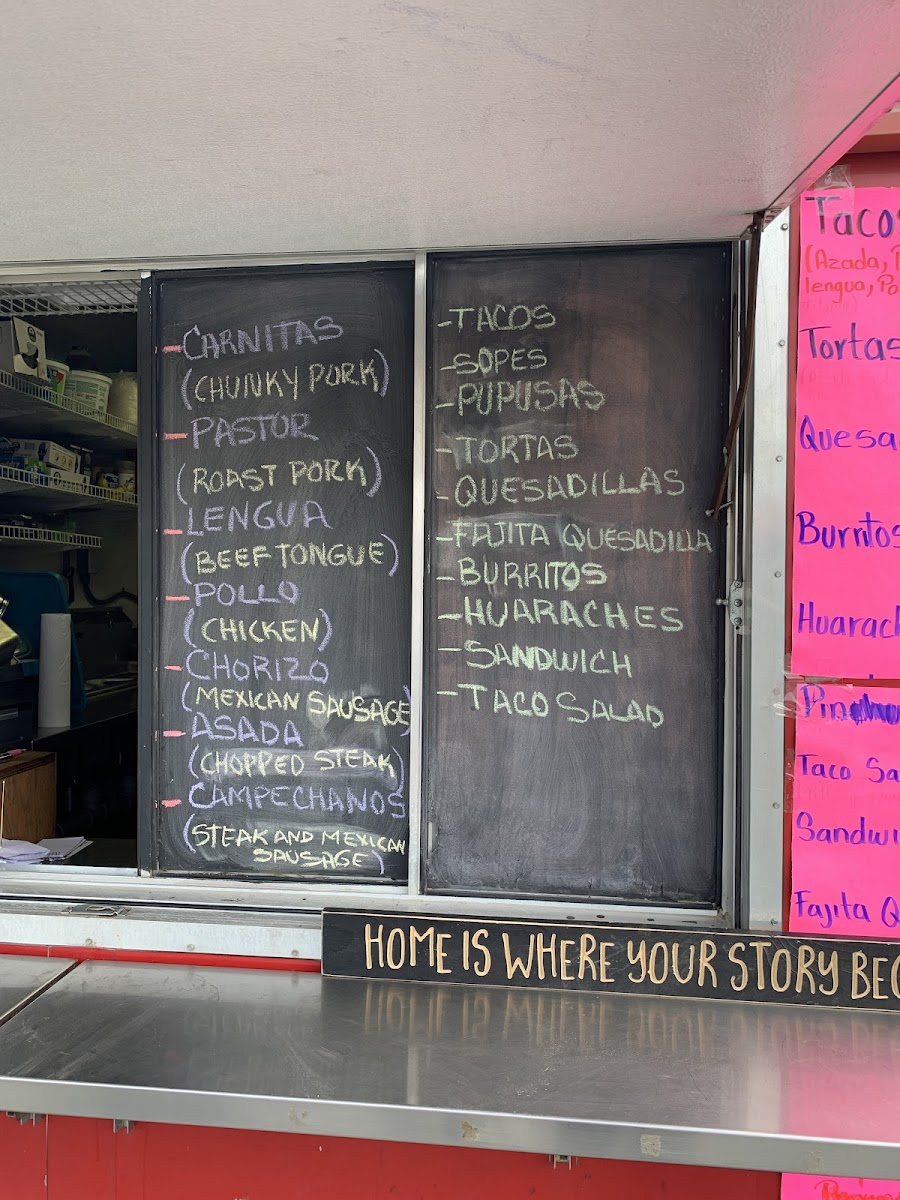 -CARNITAS
(CHUNKY PORK)
-PASTOR
(ROAST PORK)
-LENGUA
(BEEF TONGUE)
-POLLO
(CHICKEN)
-CHORIZO
(MEXICAN SAUSAGE)
-ASADA
(CHOPPED STEAK)
-CAMPECHANOS
(STEAK AND MEXICAN
SAUSAGE)
-TACOS
-SOPES
-PUPUSAS
-TORTAS
-QUESADILLAS
-FAJITA QUESADILLA
-BURRITOS
-HUARACHES
-SANDWICH
-TACO SALAD
Tacos
(Azada, P
lengua, Po
Tortas
Quesa
Burritos
Huarach
Taco Sa
Sandwi
Fajita Q
HOME IS WHERE YOUR STORY BEG